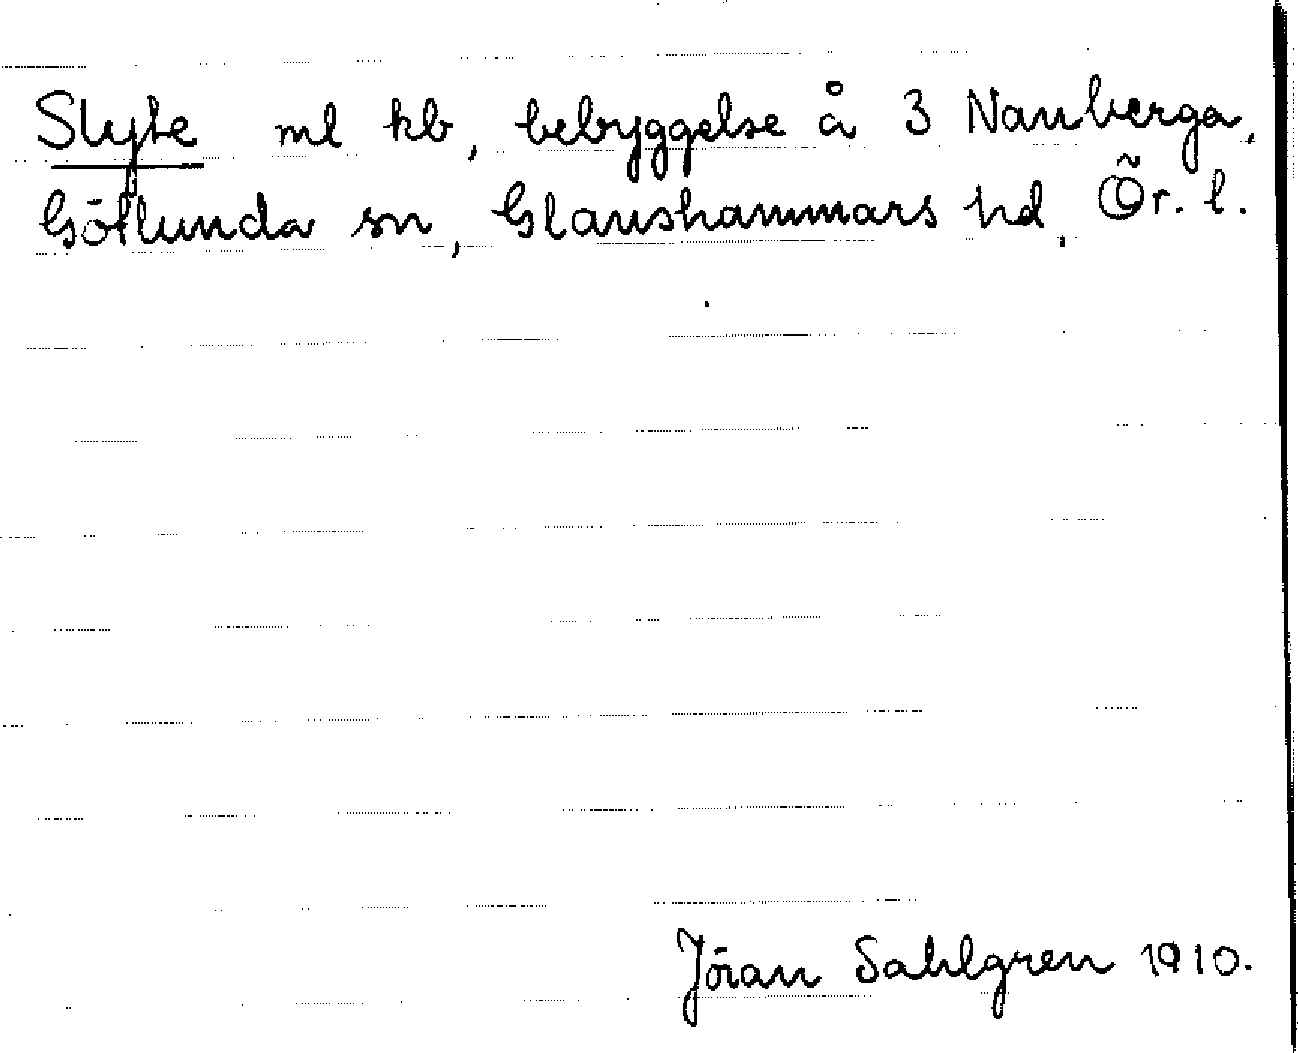 Slyte ml kb, bebyggelse å 3 Nanberga,
Götlunda sn, Glanshammars hd, Ör. l.
Jöran Sahlgren 1910.